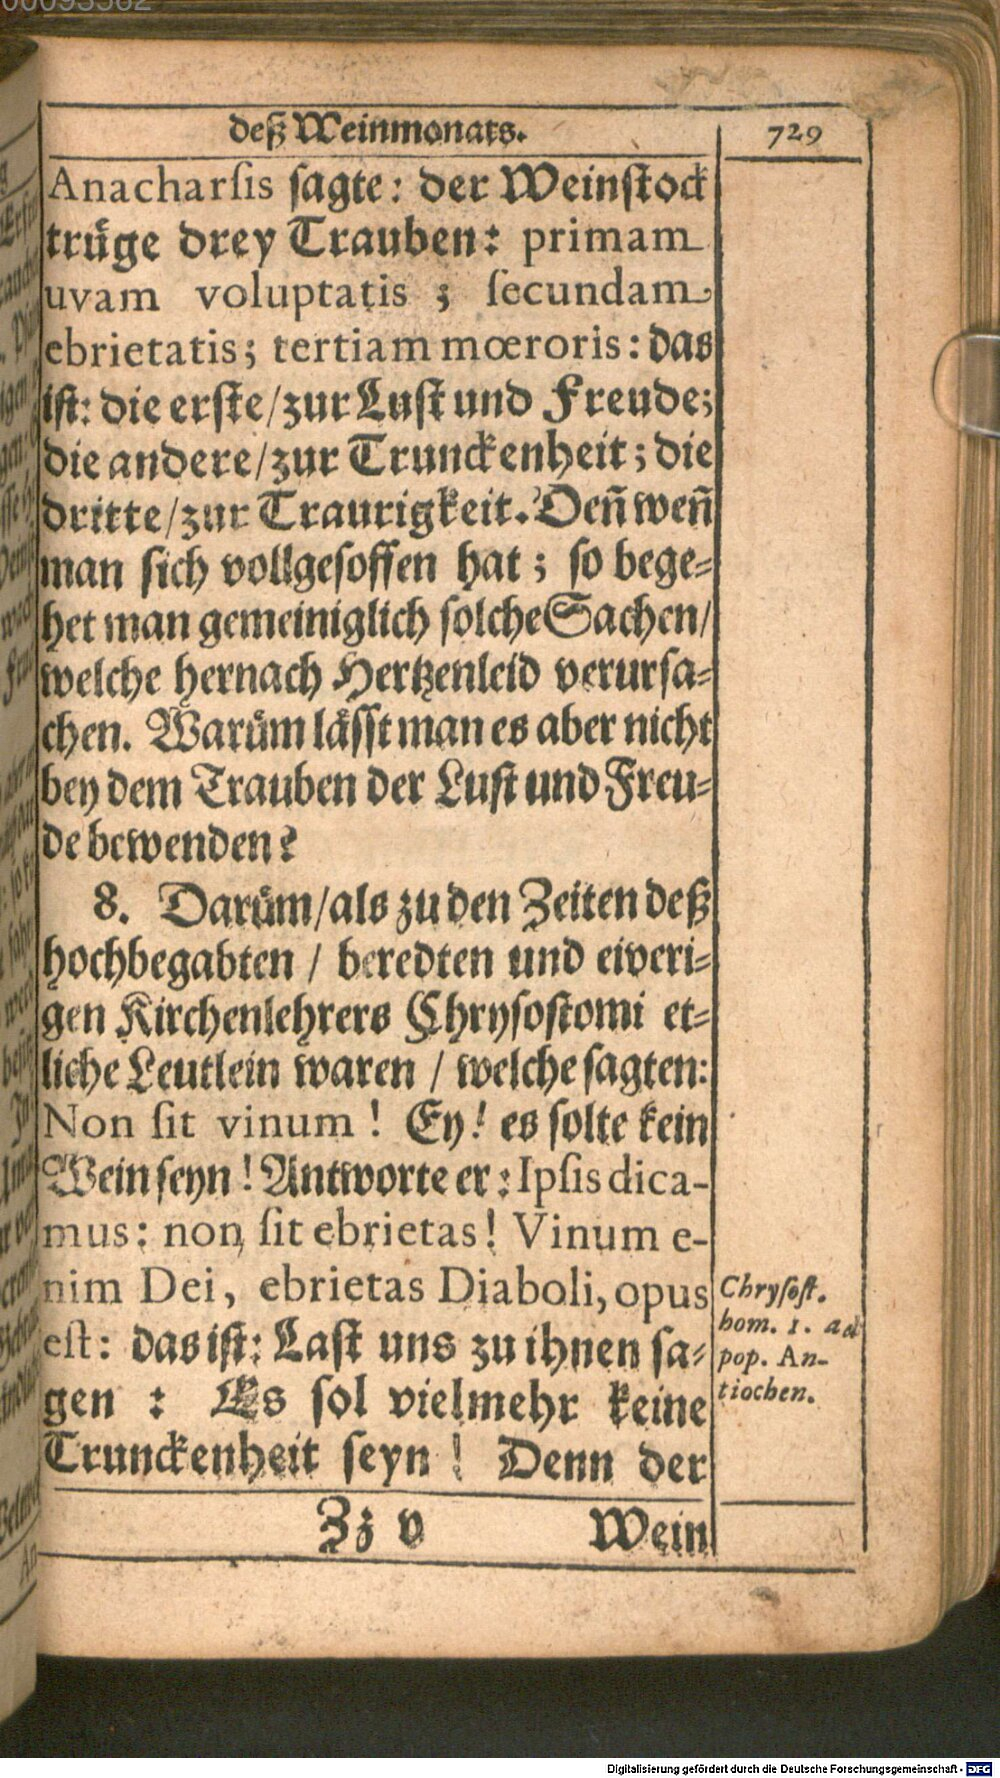 00093382
deß Weinmonats.
729
Anacharſis ſagte: der Weinſtock
truͤge drey Trauben: primam
uvam voluptatis ; ſecundam
ebrietatis; tertiam mœroris: das
iſt: die erſte/zur Luſt und Freude;
die andere/zur Trunckenheit; die
dritte/zur Traurigkeit. Deñ weñ
man ſich vollgeſoffen hat; ſo bege⸗
het man gemeiniglich ſolche Sachen/
welche hernach Hertzenleid verurſa⸗
chen. Waruͤm laͤſſt man es aber nicht
bey dem Trauben der Luſt und Freu⸗
de bewenden?
8. Daruͤm/als zu den Zeiten deß
hochbegabten / beredten und eiveri⸗
gen Kirchenlehrers Chryſoſtomi et⸗
liche Leutlein waren / welche ſagten:
Non ſit vinum ! Ey! es ſolte kein
Wein ſeyn! Antworte er: Ipſis dica-
mus: non ſit ebrietas! Vinum e-
nim Dei, ebrietas Diaboli, opus
eſt: das iſt: Laſt uns zu ihnen ſa⸗
gen : Es ſol vielmehr keine
Trunckenheit ſeyn ! Denn der
Chryſoſt.
hom. 1. ad
pop. An-
tiochen.
Zz v
Wein
Digitalisierung gefördert durch die Deutsche Forschungsgemeinschaft - DFG